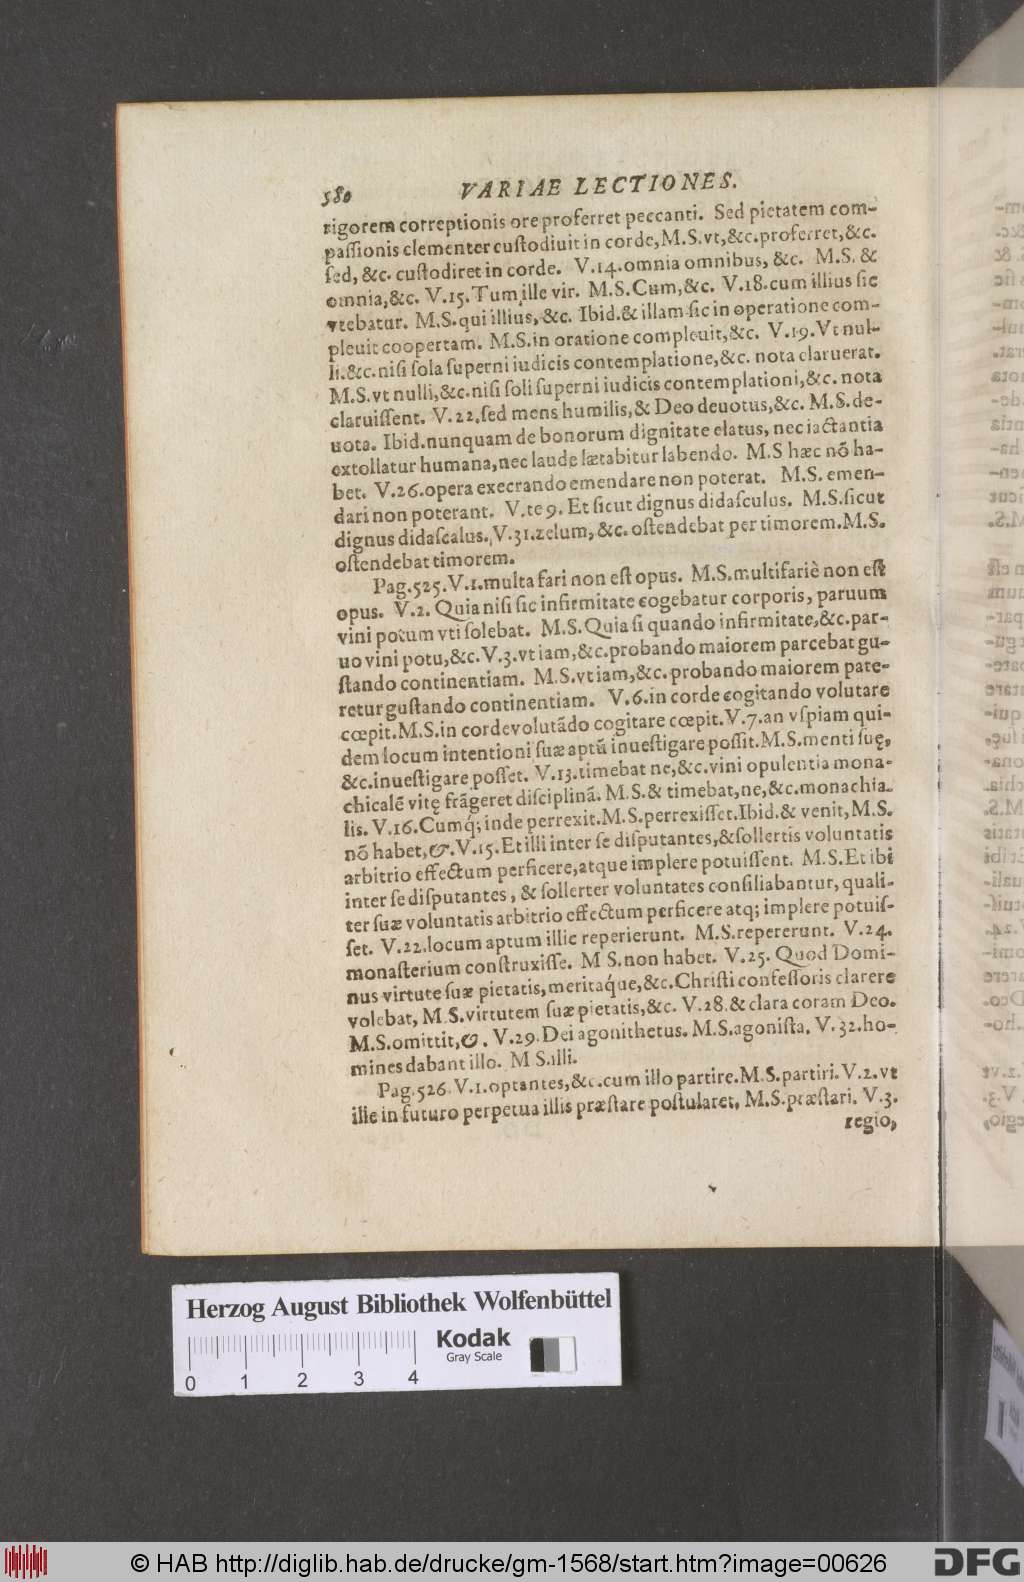 580 VARIAE LECTIONES.
rigorem correptionis ore proferret peccanti. Sed pietatem com-
passionis clementer custodiuit in corde, M.S. vt, &c. proferret, &c.
sed, &c. custodiret in corde. V. 14. omnia omnibus, &c. M.S. &
omnia, &c. V. 15. Tum ille vir. M.S. Cum, &c. V. 18. cum illius sic
vtebatur. M.S. qui illius, &c. Ibid. & illam sic in operatione com-
pleuit coopertam. M.S. in oratione compleuit, &c. V. 19. Vt nul-
li. &c. nisi sola superni iudicis contemplatione, &c. nota claruerat.
M.S. vt nulli, &c. nisi soli superni iudicis contemplationi, &c. nota
claruissent. V. 22. sed mens humilis, & Deo deuotus, &c. M.S. de-
uota. Ibid. nunquam de bonorum dignitate elatus, nec iactantia
extollatur humana, nec laude lætabitur labendo. M.S hæc nõ ha-
bet. V. 26. opera execrando emendare non poterat. M.S. emen-
dari non poterant. V. te 9. Et sicut dignus didasculus. M.S. sicut
dignus didascalus. V. 31. zelum, &c. ostendebat per timorem. M.S.
ostendebat timorem.
Pag. 525. V. 1. multa fari non est opus. M.S. multifariè non est
opus. V. 2. Quia nisi sic infirmitate cogebatur corporis, paruum
vini potum vti solebat. M.S. Quia si quando infirmitate, &c. par-
uo vini potu, &c. V. 3. vt iam, &c. probando maiorem parcebat gu-
stando continentiam. M.S. vt iam, &c. probando maiorem pate-
retur gustando continentiam. V. 6. in corde cogitando volutare
cœpit. M.S. in corde volutãdo cogitare cœpit. V. 7. an vspiam qui-
dem locum intentioni suæ aptũ inuestigare possit. M.S. menti suę,
&c. inuestigare posset. V. 13. timebat ne, &c. vini opulentia mona-
chicalẽ vitę frãgeret disciplinã. M.S. & timebat, ne, &c. monachia-
lis. V. 16. Cumq́; inde perrexit. M.S. perrexisset. Ibid. & venit, M.S.
nõ habet, &. V. 15. Et illi inter se disputantes, & sollertis voluntatis
arbitrio effectum perficere, atque implere potuissent. M.S. Et ibi
inter se disputantes, & sollerter voluntates consiliabantur, quali-
ter suæ voluntatis arbitrio effectum perficere atq; implere potuis-
set. V. 22. locum aptum illic reperierunt. M.S. repererunt. V. 24.
monasterium construxisse. M S. non habet. V. 25. Quod Domi-
nus virtute suæ pietatis, meritaq́ue, &c. Christi confessoris clarere
volebat, M.S. virtutem suæ pietatis, &c. V. 28. & clara coram Deo.
M.S. omittit, &. V. 29. Dei agonithetus. M.S. agonista. V. 32. ho-
mines dabant illo. M S. illi.
Pag. 526. V. 1. optantes, &c. cum illo partire. M.S. partiri. V. 2. vt
ille in futuro perpetua illis præstare postularet. M.S. præstari. V. 3.
regio,
Herzog August Bibliothek Wolfenbüttel
Kodak
Gray Scale
0 1 2 3 4
© HAB http://diglib.hab.de/drucke/gm-1568/start.htm?image=00626
DFG